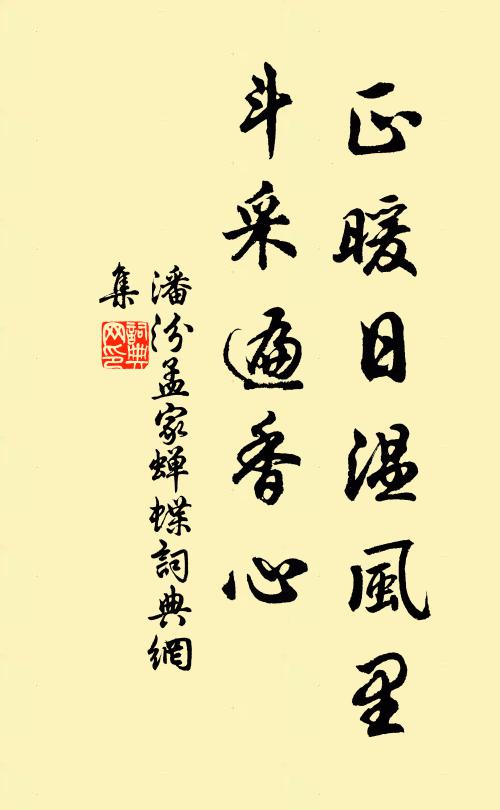 正暖日温風里
斗采遍香心
潘汾孟家蝉蝶詞典網
集
詞典
网印